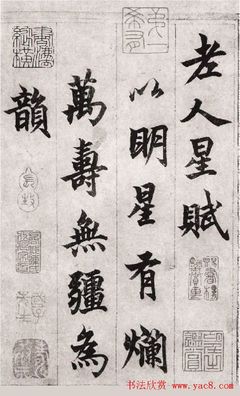 老人星賦
以明星有爛
萬壽無疆為
韻
书法欣赏 www.yac8.com